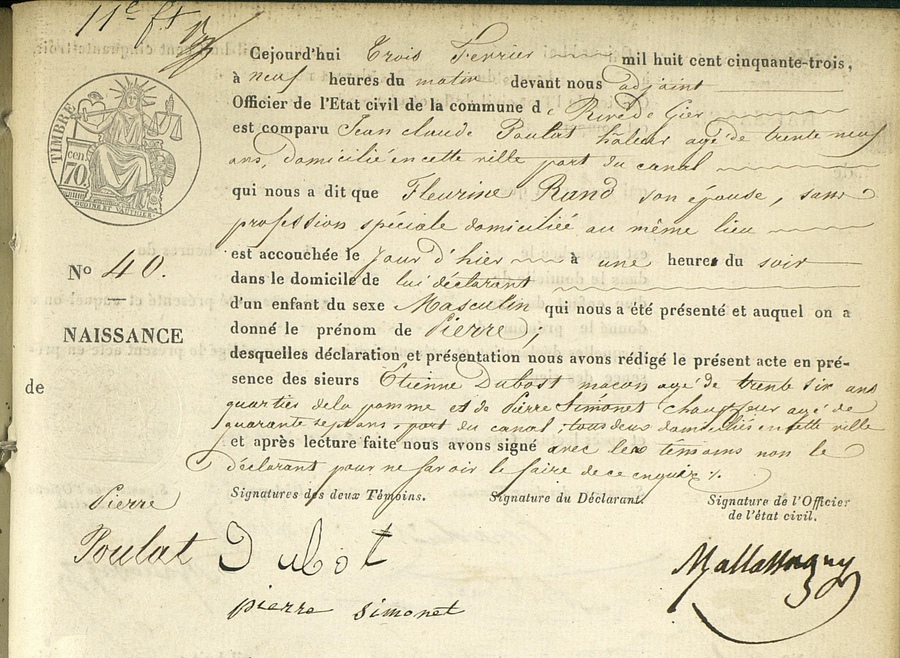 11e ft
TIMBRE
cen
70
Cejourd'hui Trois Fevrier mil huit cent cinquante-trois,
à neuf heures du matin devant nous adjoint
Officier de l'Etat civil de la commune de Rive De Gier
est comparu Jean claude Poulat haleur agé de trente neuf
ans, domicilié en cette ville port du canal
qui nous a dit que Fleurine Rand son épouse, sans
profession spéciale domiciliée au même lieu
est accouchée le jour d'hier à une heures du soir
dans le domicile de lui déclarant
d'un enfant du sexe Masculin qui nous a été présenté et auquel on a
donné le prénom de Pierre;
desquelles déclaration et présentation nous avons rédigé le présent acte en pré-
sence des sieurs Etienne Dubost maçon agé de trente six ans
quartier de la pomme et de Pierre Simonet chauffeur agé de
quarante sept ans, port du canal; tous deux domiciliés en cette ville
et après lecture faite nous avons signé avec les témoins non le
déclarant pour ne savoir le faire de ce enquis
No 40.
NAISSANCE
de
Pierre
Poulat
Signatures des deux Témoins.
Signature du Déclarant.
Signature de l'Officier
de l'état civil.
Dubot
pierre simonet